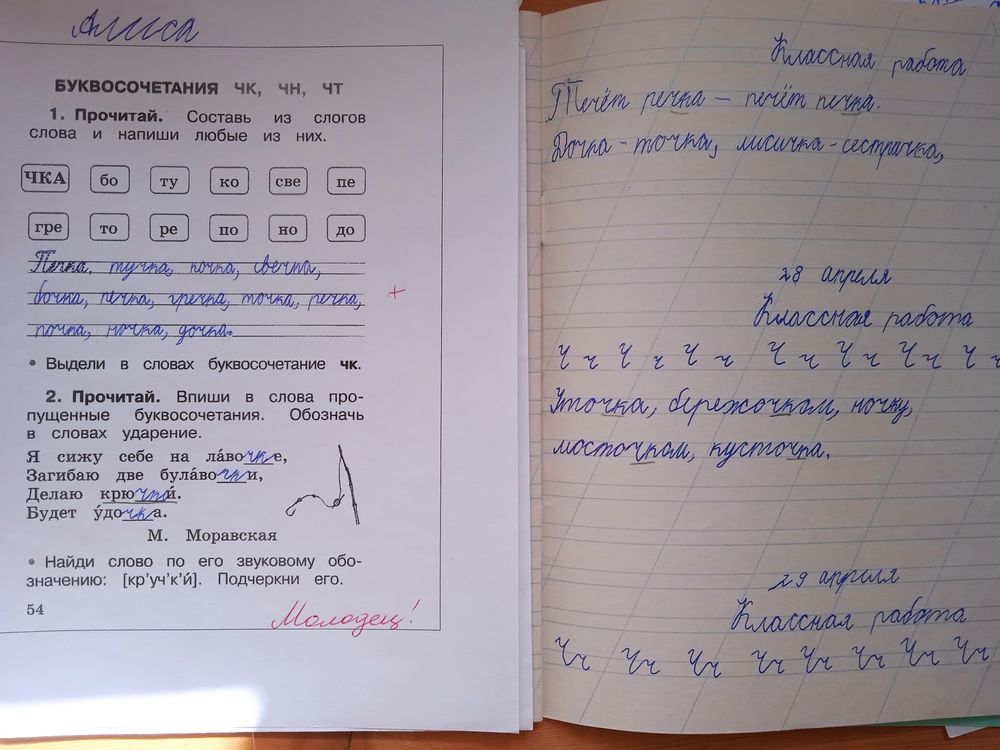 Алиса
БУКВОСОЧЕТАНИЯ ЧК, ЧН, ЧТ
1. Прочитай. Составь из слогов
слова и напиши любые из них.
ЧКА бо ту ко све пе
гре то ре по но до
Печка, тучка, кочка, свечка,
бочка, печка, гречка, точка, речка,
почка, ночка, дочка.
+
• Выдели в словах буквосочетание чк.
2. Прочитай. Впиши в слова про-
пущенные буквосочетания. Обозначь
в словах ударение.
Я сижу себе на ла́вочке,
Загибаю две була́вочки,
Делаю крючки́.
Будет у́дочка.
М. Моравская
• Найди слово по его звуковому обо-
значению: [кр'уч'к'и́]. Подчеркни его.
54
Молодец!
Классная работа
Течёт речка – печёт печка.
Дочка - точка, лисичка-сестричка,
28 апреля
Классная работа
Ч ч Ч ч Ч ч Ч ч Ч ч Ч ч Ч ч
Уточка, бережочком, ночку,
мосточком, кусточка.
29 апреля
Классная работа
Чч Чч Чч Чч Чч Чч Чч Чч